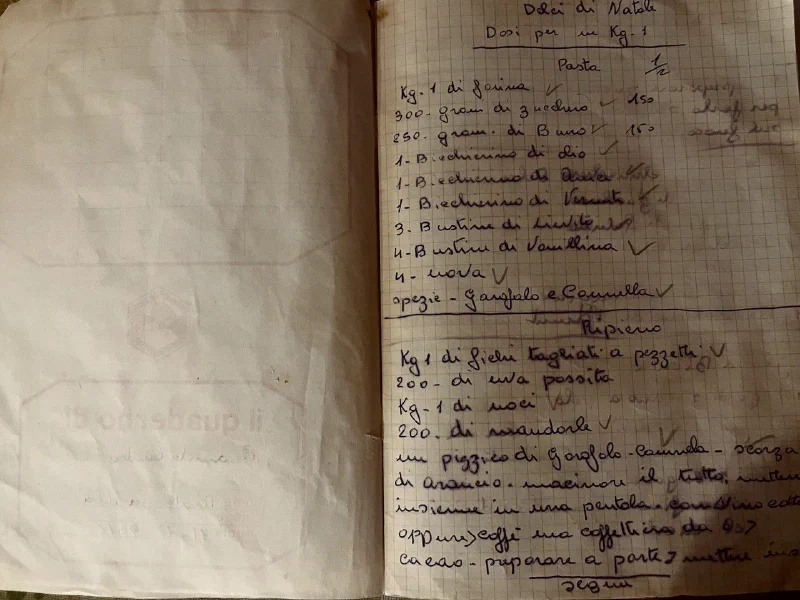 Dolci di Natale
Dosi per un Kg-1
Pasta 1/2
Kg. 1 di farina
300- gram di zucchero 150
250- gram. di Burro 150
1- Bicchierino di olio
1- Bicchierino di
1- Bicchierino di Vermut
3. Bustine di Lievito
4- Bustine di Vanillina
4- uova
spezie - Garofalo e Cannella
Ripieno
Kg 1 di fichi tagliati a pezzetti
200- di uva passita
Kg-1 di noci
200. di mandorle
un pizzico di Garofolo - Cannela - scorza
di arancio - macinare il tutto, mettere
insieme in una pentola - con vino cotto
oppure caffè una caffettiera da
cacao - preparare a parte mettere
segue
il quaderno di